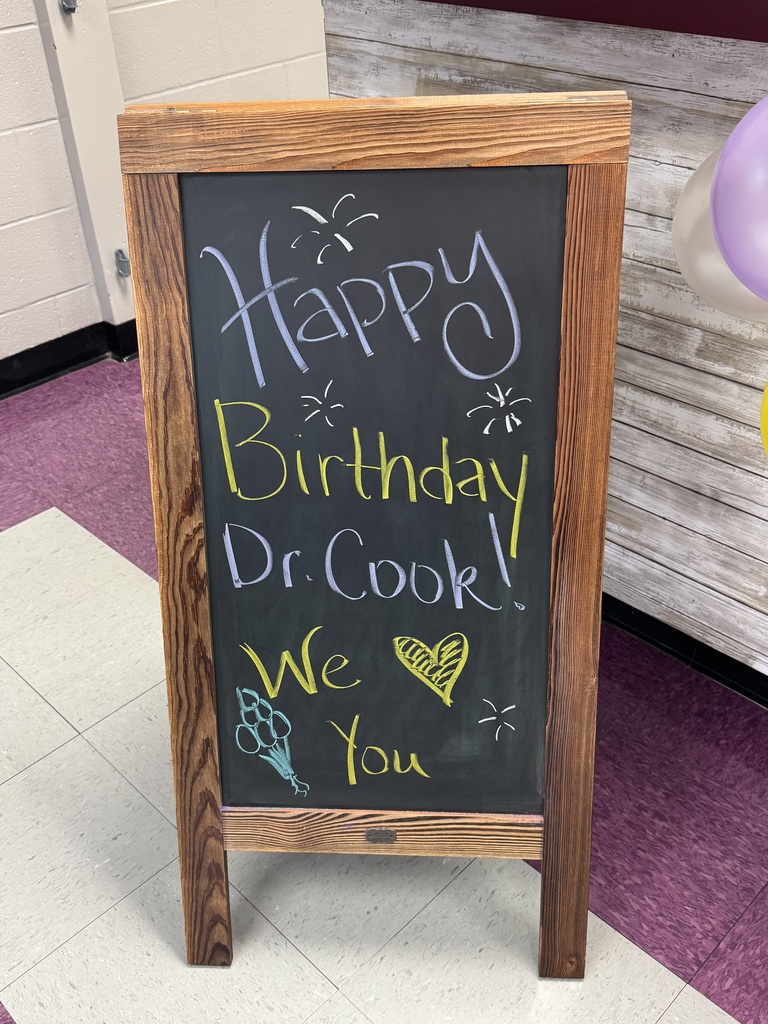 Happy
Birthday
Dr. Cook!
We
You